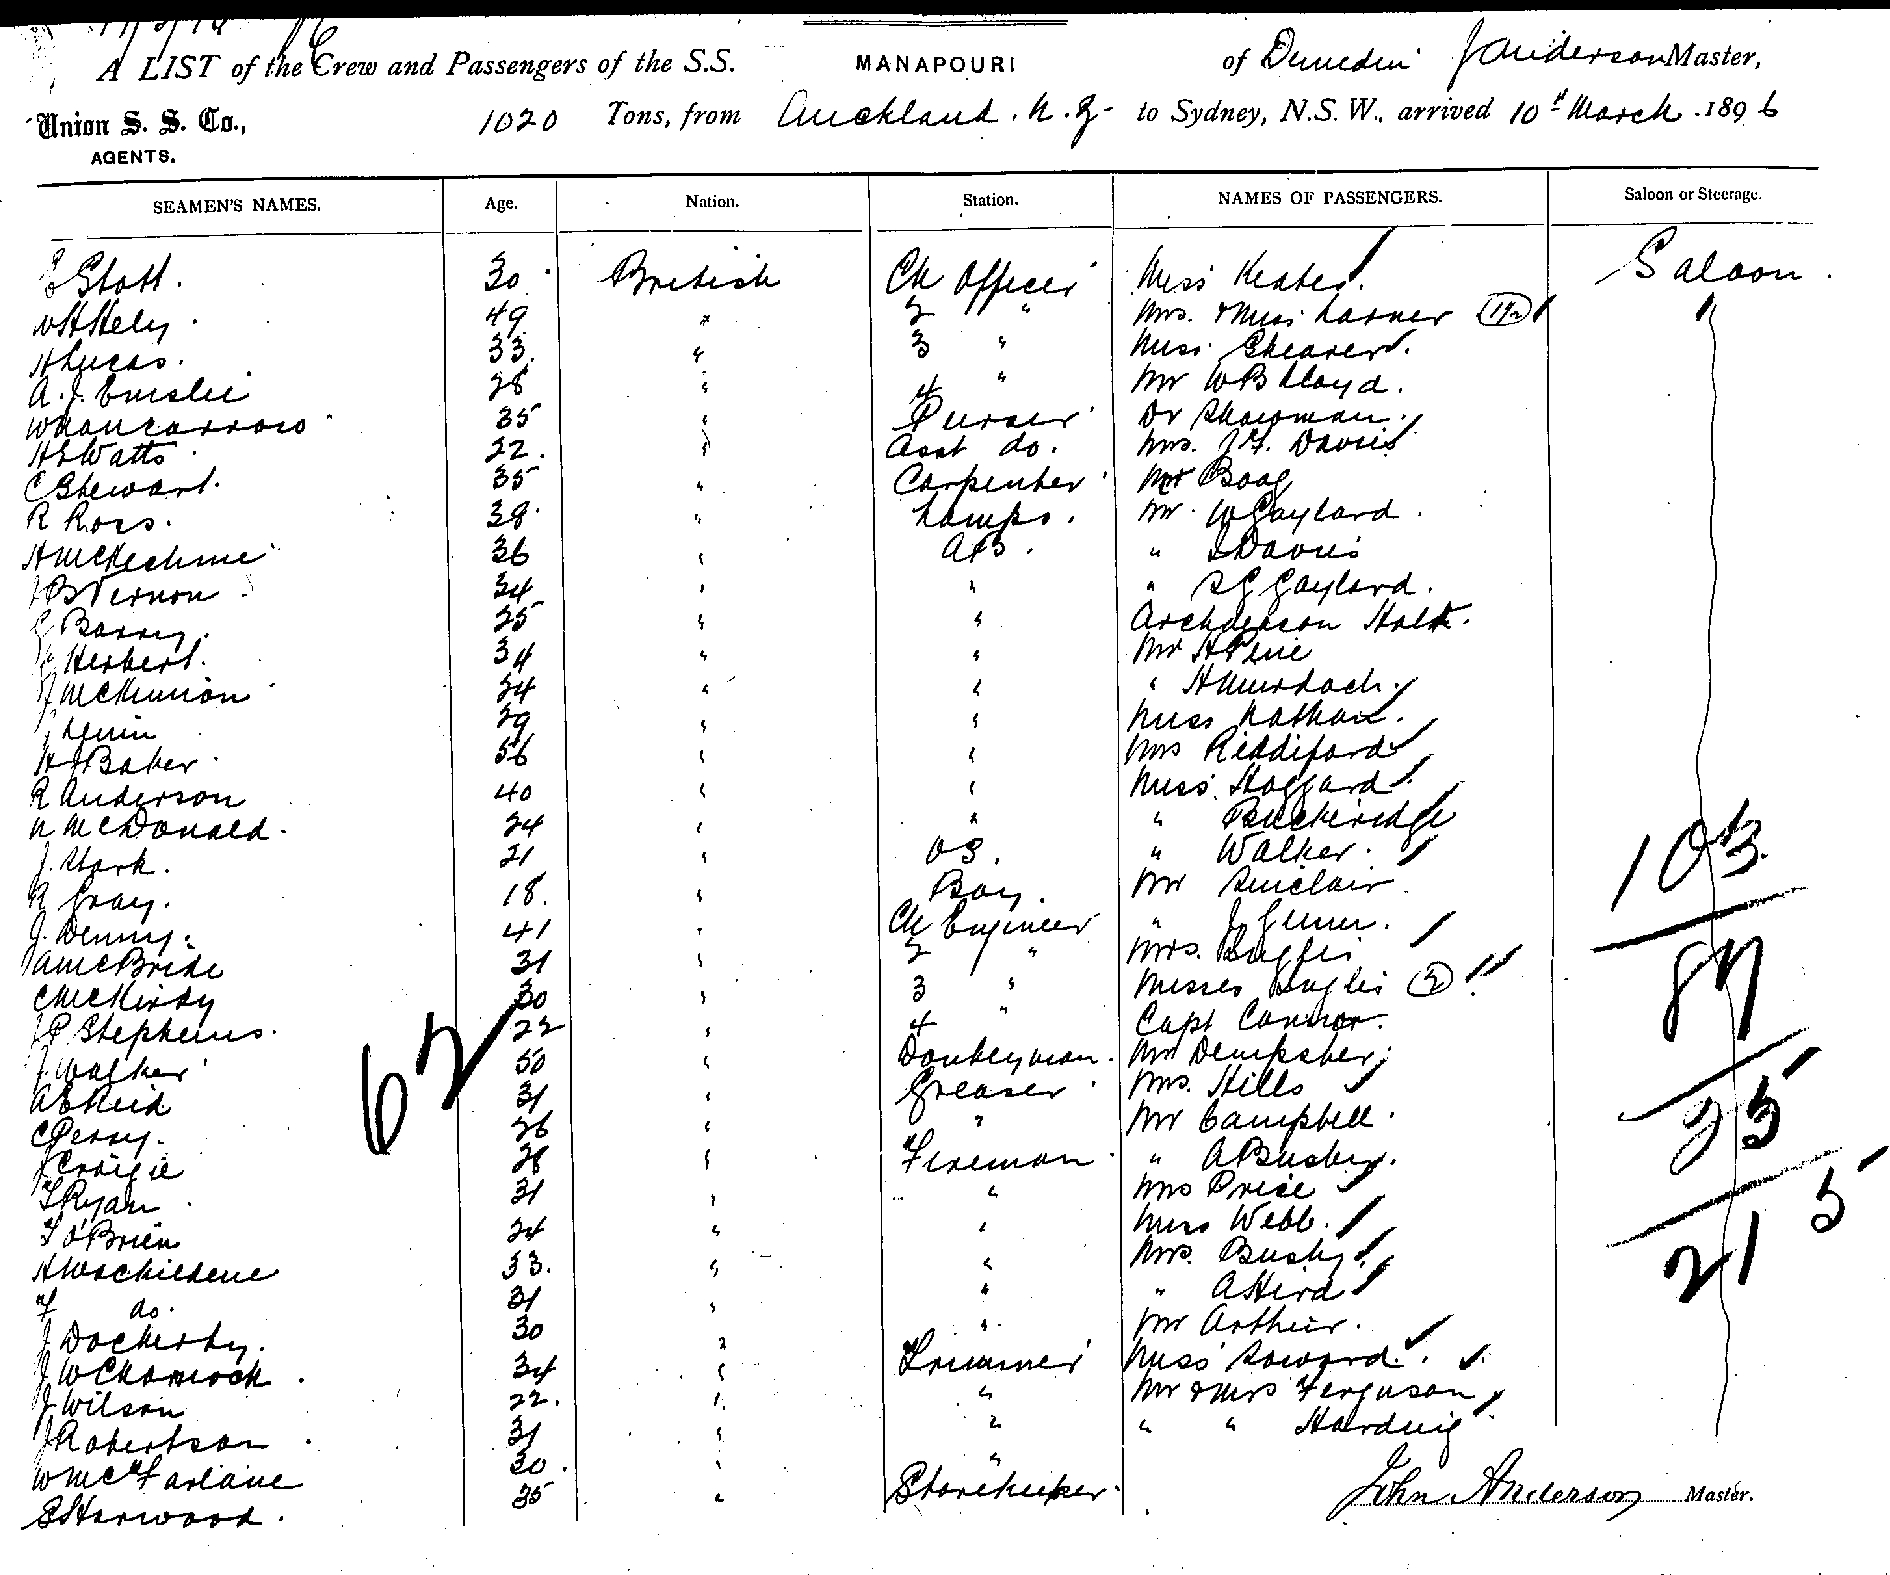 A LIST of the Crew and Passengers of the S.S. MANAPOURI of Dunedin J Anderson Master,
Union S. S. Co., AGENTS. 1020 Tons, from Auckland. N.Z to Sydney, N.S.W., arrived 10th March 1896
SEAMEN'S NAMES. Age. Nation. Station. NAMES OF PASSENGERS. Saloon or Steerage.
Stott. 30 British Ch Officer Miss Keates. Saloon.
W H Hely 49 " 2 " Mrs. & Miss Larner "
H Lucas. 33. " 3 " Miss Shearer.
A. J. Emslie 28 " 4 " Mr W B Lloyd.
35 " Purser Dr Showman.
H E Watts 22. " Asst do. Mrs. J. F. Davis
C Stewart. 35 " Carpenter Mr Boag
R Ross. 38. " Lamps. Mr. W Gaylard.
H McKechnie 36 " AB. " Davies
J B Vernon 34 " " " S G Gaylard.
G Barry. 25 " " Archdeacon
Herbert. 34 " " Mr H
J McKinnion 24 " " " H Murdoch.
29 " " Miss Nathan.
H J Baker 56 " " Mrs Riddiford
R Anderson 40 " " Miss. Hoggard
N McDonald. 24 " " " Buckeridge
J. Stark. 21 " OS. " Walker.
R Gray. 18. " Boy. Mr Sinclair.
J. Denny. 41 " Ch Engineer " J
A McBride 31 " 2 " Mrs. Inglis
C McKirdy 30 " 3 " Misses Inglis (2)
J P Stephens. 22 " 4 " Capt Connor.
J. Walker 50 " Donkeyman. Mr Dempster
A E Reid 31 " Greaser Mrs. Hills
C Perry. 26 " " Mr Campbell.
J Craigie 28 " Fireman " A Busby.
T Ryan 31 " " Mrs Price
T O'Brien 24 " " Miss Webb.
33. " " Mrs. Busby
do. 31 " " " A Hird
J Dockerty. 30 " " Mr Arthur.
J W Charnock. 34 " Trimmer Miss Saword.
J Wilson 22. " " Mr & Mrs Ferguson
J Robertson 31 " " " " Harding
W McFarlane 30. " "
S Harwood. 35 " Storekeeper. John Anderson Master.
62
103
87
25
215